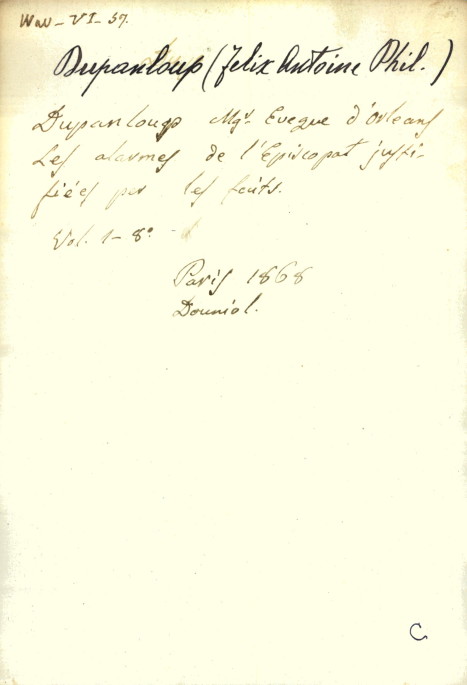 Wav-VI-37.
Dupanloup (Felix Antoine Phil.)
Dupanloup Mgr. Eveque d'Orleans
Les alarmes de l'Episcopat justi-
fiées par les faits.
Vol. 1-8º
Paris 1868
Douniol.
C